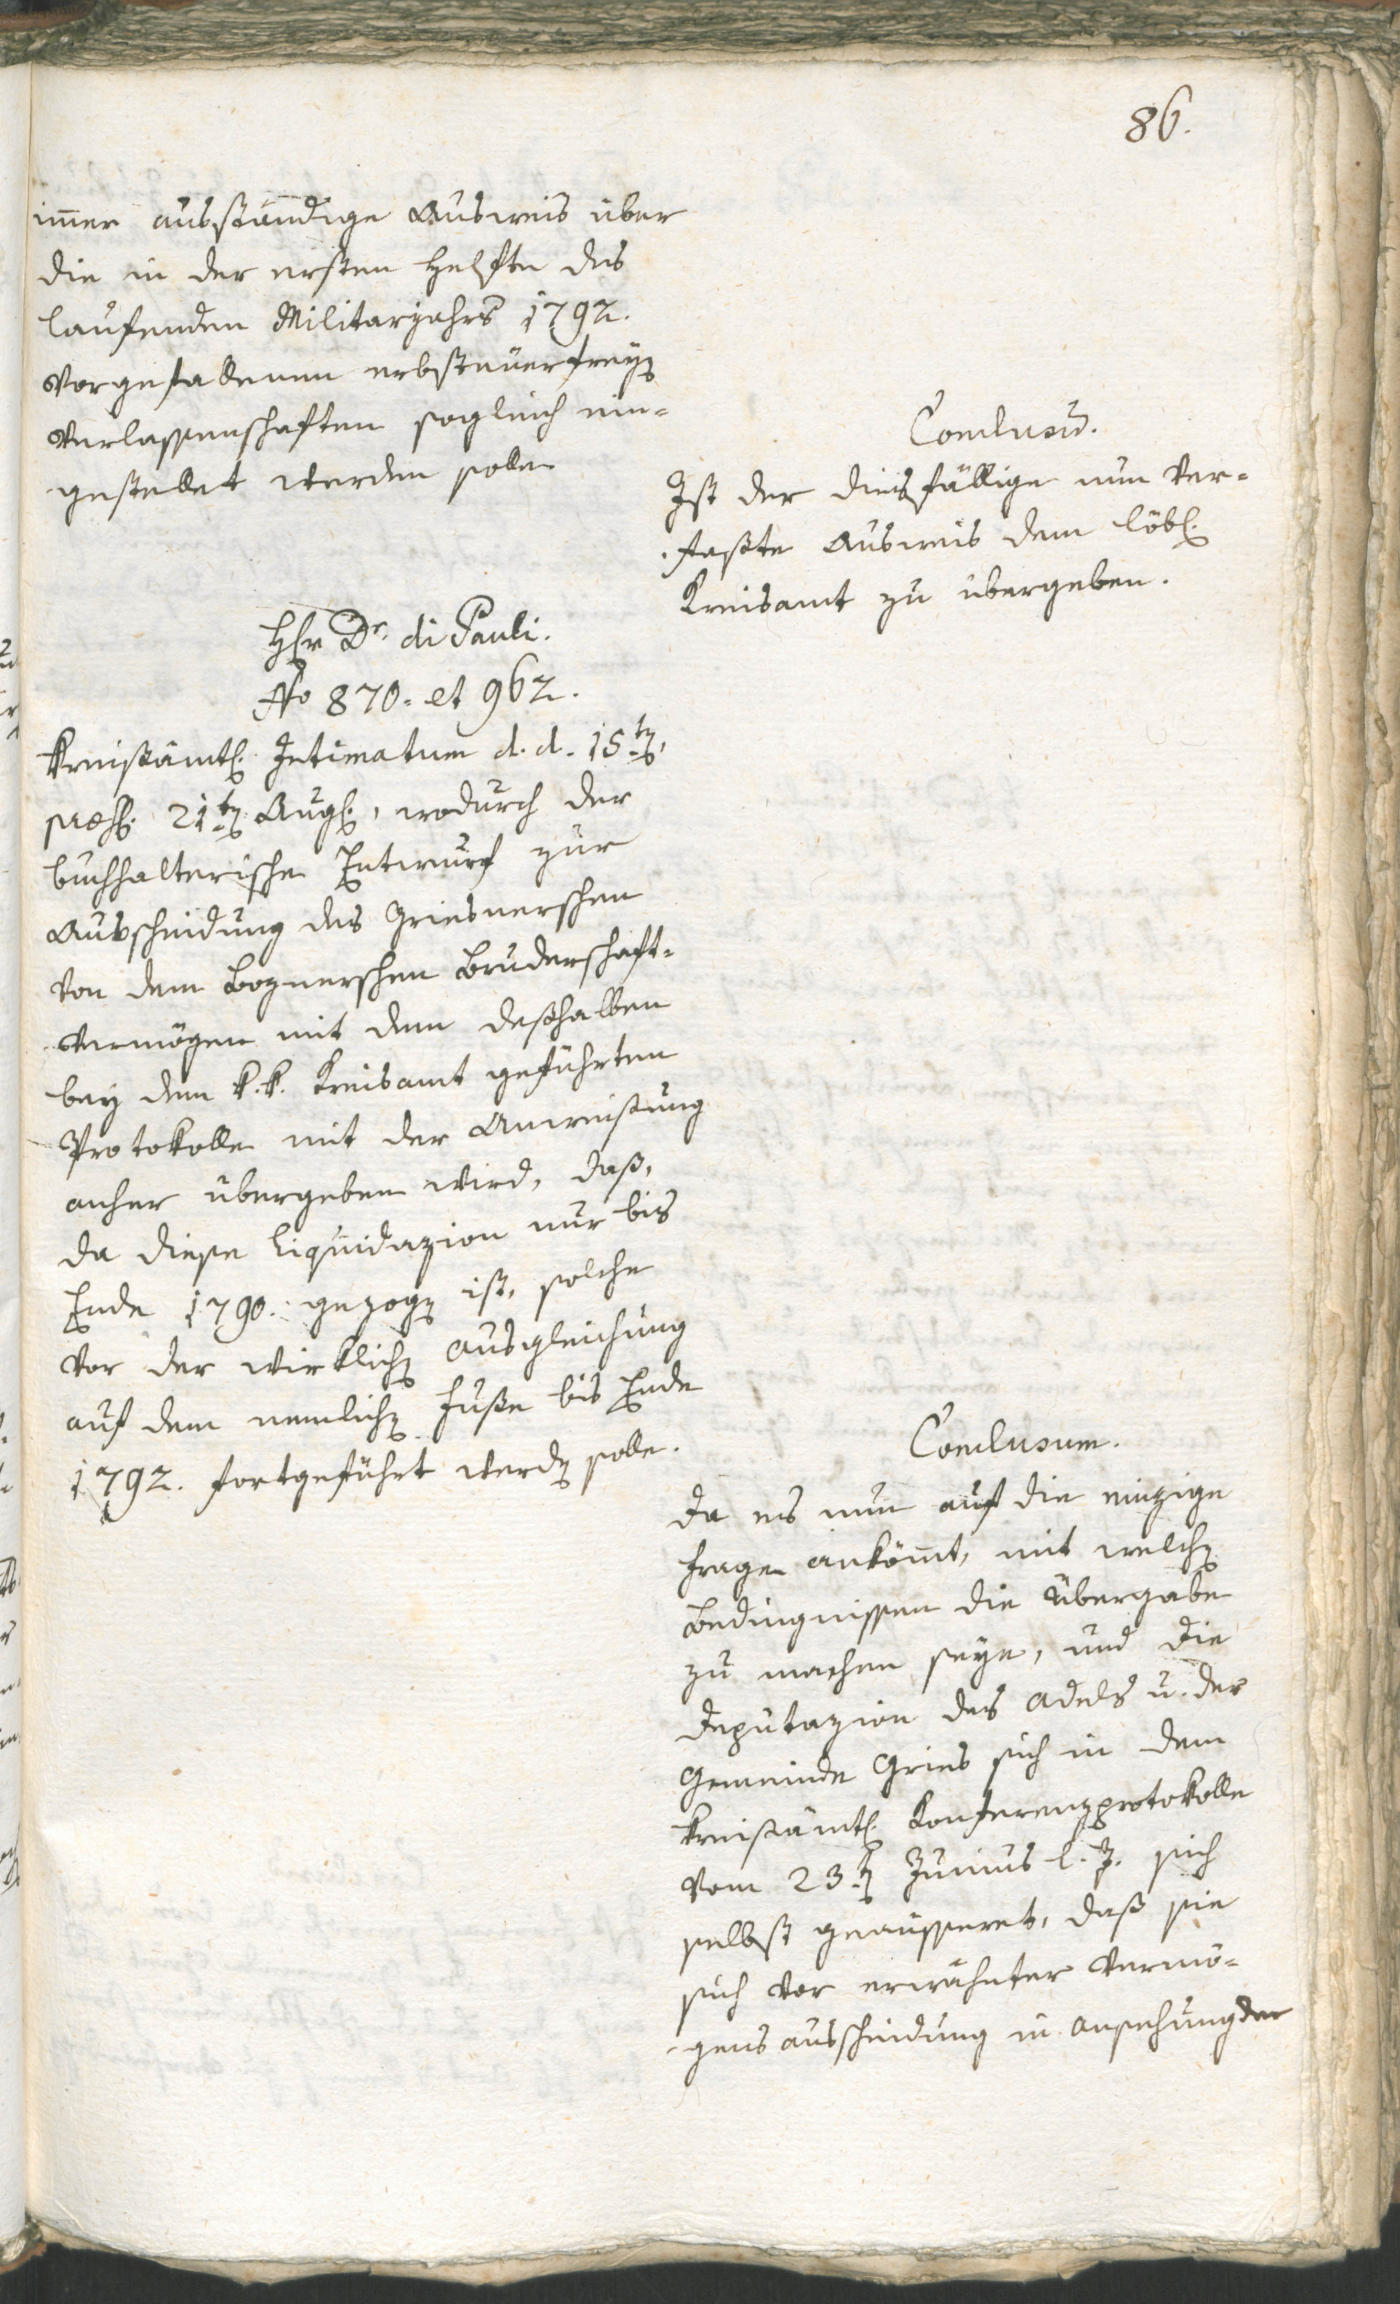 86.
im̅er ausständige Ausweis über
die in der ersten Helfte des
laufenden Militarjahrs 1792.
vorgefallenen erbsteuerfreyen
Verlassenschaften sogleich ein-
gestellet werden solle
Conclusum̅.
Ist der diesfällige nun ver-
faßte Ausweis dem löbl.
Kreisamt zu übergeben.
Hr Dr. di Pauli.
No 870. et 962.
Kreisämtl. Intimatum d. d. 15ten,
praes. 21ten Aug., wodurch der
buchhalterische Entwurf zur
Ausscheidung des Griesnerschen
von dem Boznerschen Bruderschaft-
vermögen mit dem deßhalben
bey dem k. k. Kreisamt geführten
Protokolle mit der Anweisung
anher übergeben wird, daß,
da diese Liquidazion nur bis
Ende 1790. gezogen ist, solche
vor der wirklichen Ausgleichung
auf dem nemlichen Fuße bis Ende
1792. fortgeführt werden solle.
Conclusum.
Da es nun auf die einzige
Frage ankömt, mit welchen
Bedingnissen die Übergabe
zu machen seye, und die
Deputazion des Adels u. der
Gemeinde Gries sich in dem
kreisämtl. Konferenzprotokolle
vom 23ten Junius l. J. sich
selbst geäusseret, daß sie
sich vor erwähnter Vermö-
gens ausscheidung in Ansehung der